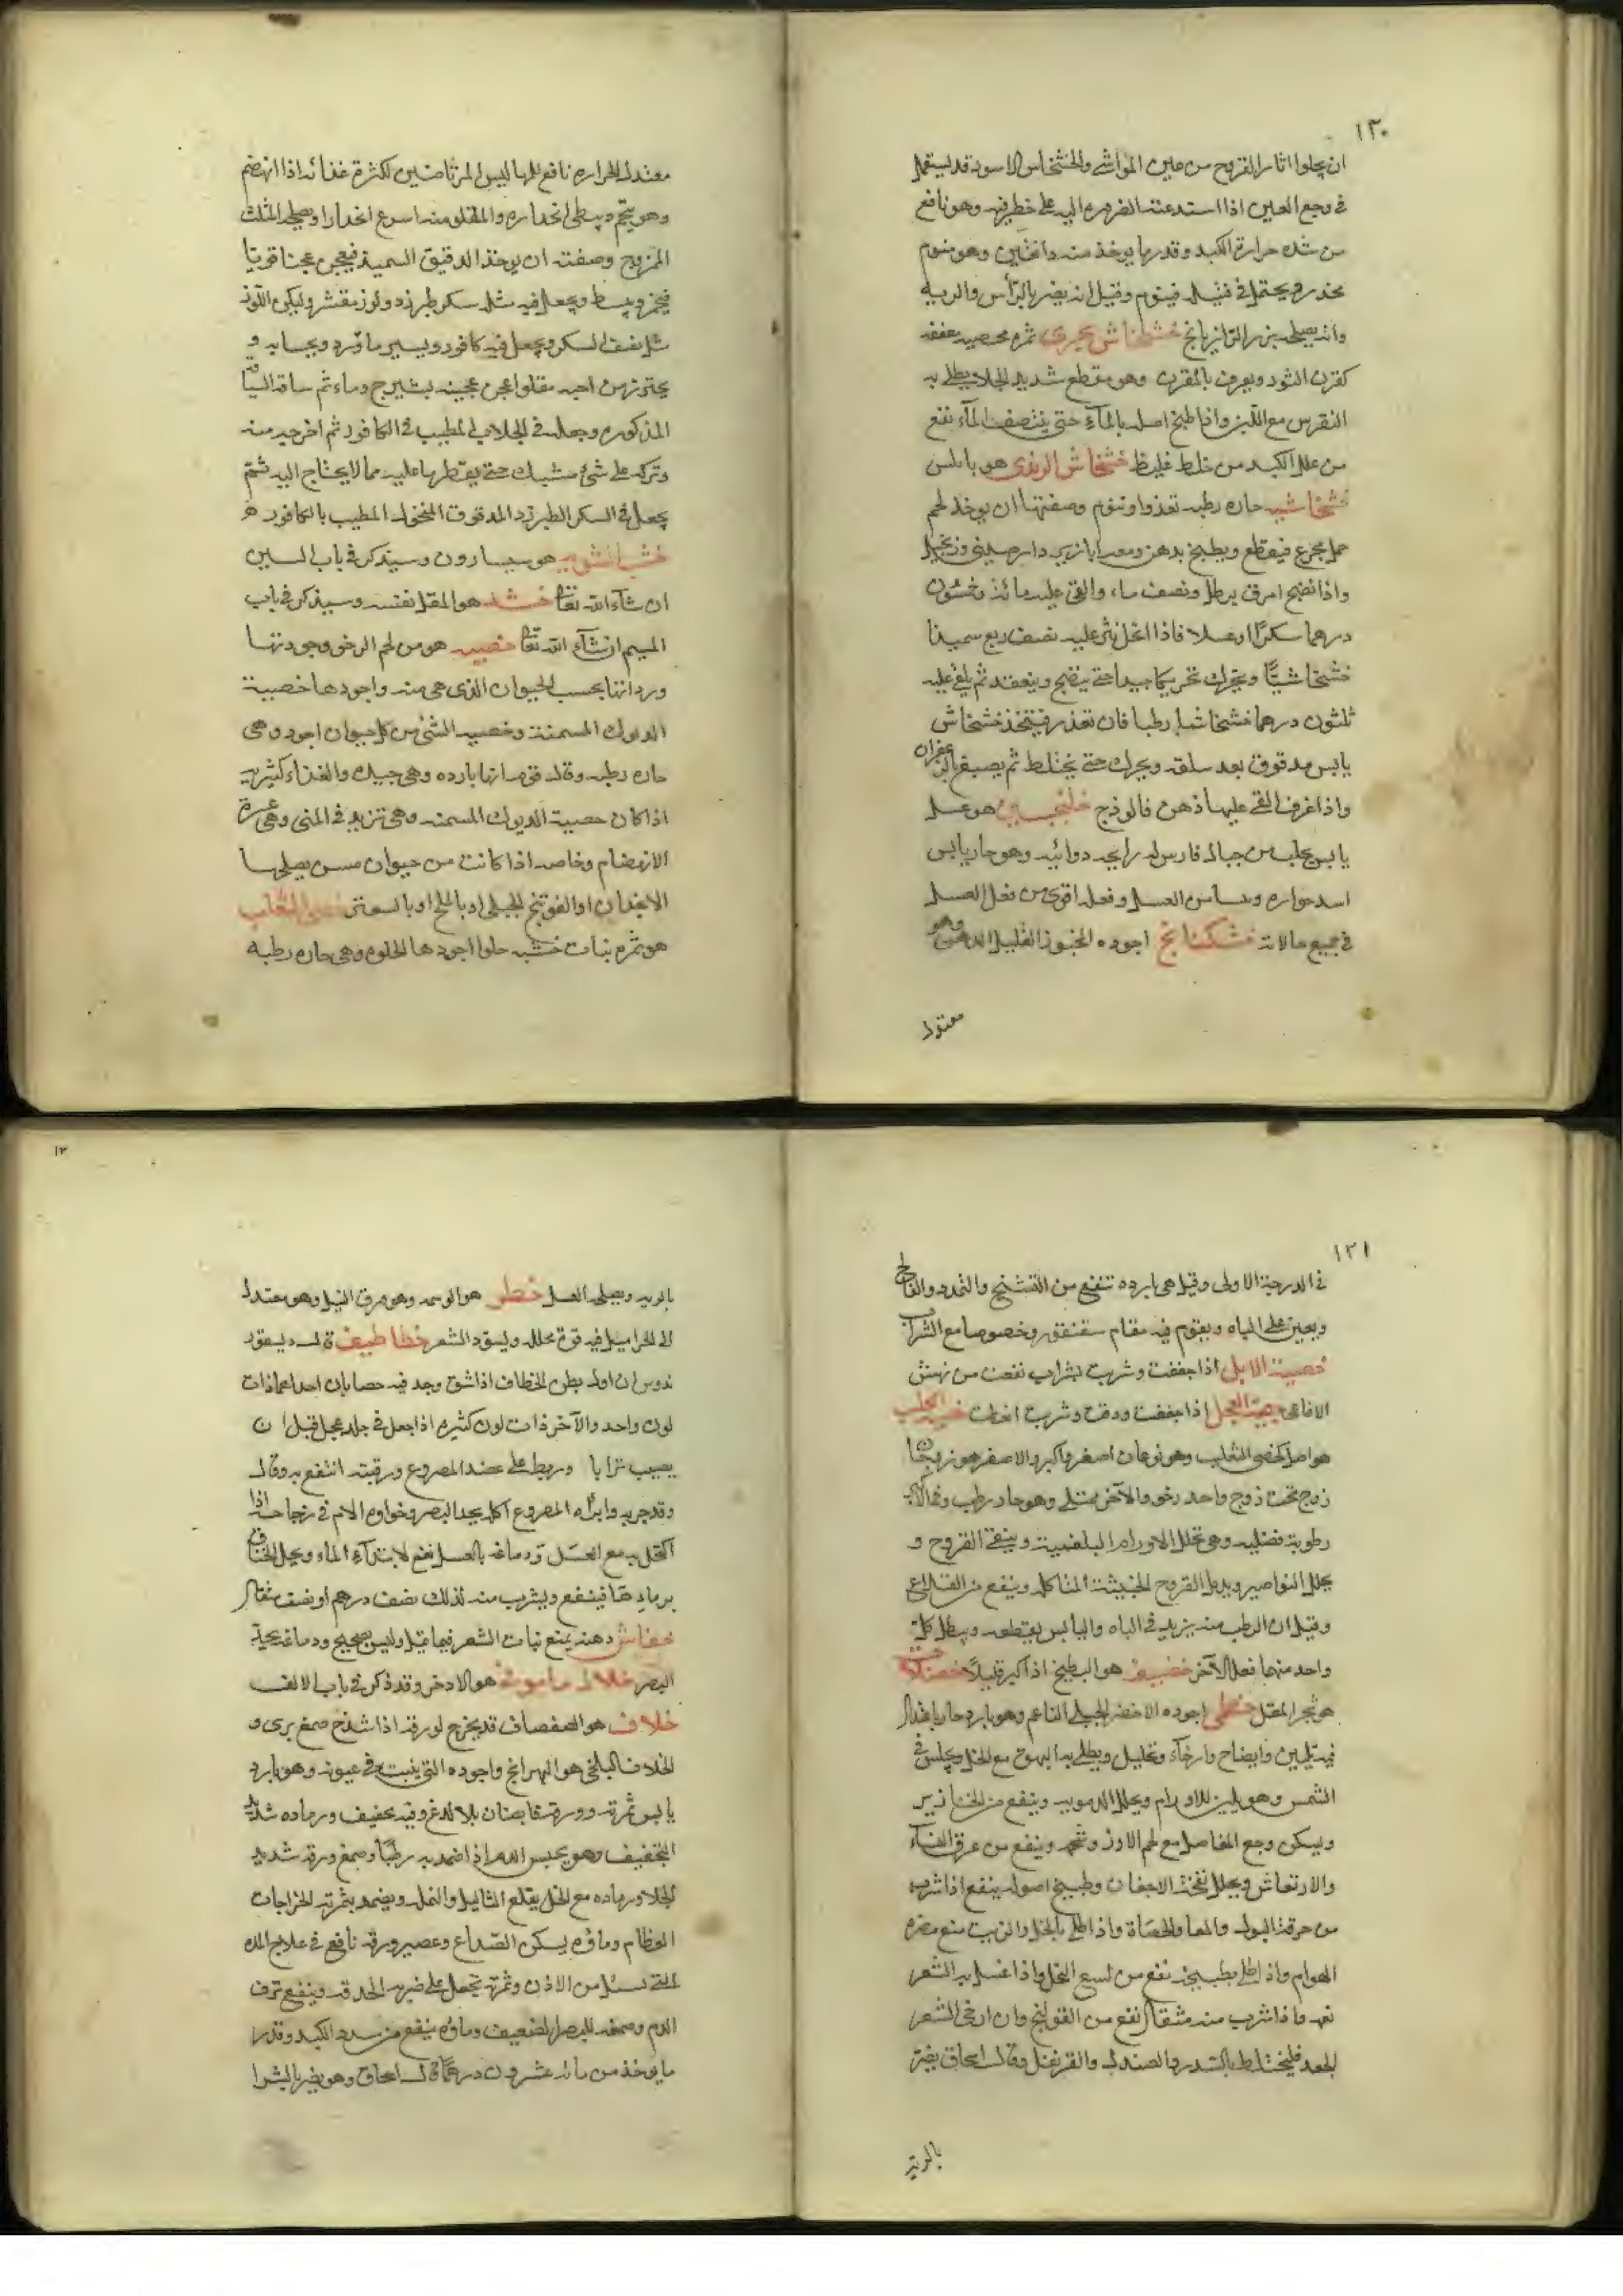 ١٣٠
ان يجلوا اثار القروح من عين المواشى والخشخاش الاسود قد يستعمل
فى وجع العين اذا استدعت الضروره اليه على خطر فيه وهو نافع
من شده حرارة الكبد وقدر ما يوخذ منه دانقين وهو منوم
مخدر ويحتمل فى فتيله فينوم وقيل انه يضر بالرأس والريه
وانه يصلحه بزر الرازيانج خشخاش بحرى ثمره محصيه معقفه
كقرن الثور ويعرف بالمقرن وهو مقطع شديد الجلا يطلى به
النقرس مع اللبن واذا طبخ اصله بالمآء حتى ينتصف المآء نفع
من علل الكبد من خلط غليظ خشخاش الزبدى هو بابلس
خشخاشيه حاره رطبه تغذوا وتنوم وصفتها ان يوخذ لحم
حمل مجزع فيقطع ويطبخ بدهن دارصينى وزنجبيل
واذا نضج امرق برطل ونصف ماء والقى عليه مائة وخمسون
درهما سكرًا او عسلا فاذا انحل نثر عليه نصف ربع سميذا
خشخاشيًّا ويحرك تحريكا جيدا حتى ينضج وينعقد ثم يلقى عليه
ثلثون درهما خشخاشا رطبا فان تعذر فيتخذ خشخاش
يابس مدقوق بعد سلقه ويحرك حتى يختلط ثم يصبغ بالزعفران
واذا غرف القى عليها دهن فالوذج خشكنجبين هو عسل
يابس يجلب من جبال فارس له رايحه دوائيه وهو حار يابس
اسد حراره ويبسا من العسل وفعله اقوى من فعل العسل
فى جميع حالاته خشكنانج اجوده المخبوز القليل الدهن وهو
معتدل
معتدل الحراره نافع للها ليس للمرتاضين لكثرة غذائه اذا انهضم
وهو يتخم ويبطى انحداره والمقلو منه اسرع انحدارا ويصلحه المثلث
الممزوج وصفته ان يوخذ الدقيق السميذ فيعجن عجنا قويا
فيخبز ويبسط ويجعل فيه مثله سكر طبرزد ولوز مقشر وليكن اللوز
مثل نصف السكر ويجعل فيه كافور ويسير ماورد ويجسا به و
يحترز من احبه مقلوا عجن عجينه بشيرج وماء ثم ساقه السياقه
المذكوره وجعله فى الجلاب المطيب فى الكافور ثم اخرجه منه
وتركه على شئ مشبك حتى يقطر ما عليه مما لا يحتاج اليه ثم
يجعل فى السكر الطبرزد المدقوق المنخول المطيب بالكافور
خشب الشونيز هو سيسارون وسيذكر فى باب السين
ان شآء الله تعالى خشل هو المقل نفسه وسيذكر فى باب
الميم ان شآء الله تعالى خصيه هو من لحم الرخو وجودتها
ورداتها بحسب الحيوان الذى هى منه واجودها خصية
الديوك المسمنة وخصيه الشئ من كل حيوان اجود وهى
حاره رطبه وقال قوم انها بارده وهى جيدة والغذاء كثيره
اذا كان خصية الديوك المسمنه وهى تزيد فى المنى وهى عسرة
الانهضام وخاصه اذا كانت من حيوان مسن يصلحها
الانجدان او الفوتنج الجبلى او بالملح او بالسعتر خصى الثعلب
هو ثمره نبات خشبه حلوا اجودها الحلوه وهى حاره رطبه
١٣١
فى الدرجة الاولى وقيل هى بارده تنفع من التشنج والتمدد والفالج
ويعين على الباه ويقوم فيه مقام سقنقور وخصوصا مع الشراب
خصية الابل اذا جففت وشربت بشراب نفعت من نهش
الافاعى خصية العجل اذا جففت ودقت وشربت انعظت خصى الكلب
هو اصل كخصى الثعلب وهو نوعان اصغر واكبر والاصغر هو زوجان
زوج تحت زوج واحد رخو والآخر ممتلى وهو حار رطب وفى الاكبر
رطوبة فضليه وهى تحلل الاورام البلغمية وينقى القروح و
يحلل النواصير ويدمل القروح الخبيثة المتاكله وينفع من القلاع
وقيل ان الرطب منه يزيد فى الباه واليابس يقطعه ويبطل كل
واحد منهما فعل الآخر خضيف هو البطيخ اذا كبر قليلاً
هو شجر المقل خطمى اجوده الاخضر الجبلى الناعم وهو بارد حار باعتدال
فيه تليين وايضاح وارخآء وتحليل ويطلى به البهق مع الخل ويجلس فى
الشمس وهو يلين للاورام ويحلل الدمويه وينفع من الخنازير
ويسكن وجع المفاصل مع لحم الاوز وشحمه وينفع من عرق النسآء
والارتعاش ويحلل نفخة الاجفان وطبيخ اصوله ينفع اذا شرب
من حرقة البول والمعا والحصاة واذا طلى بالخل والزيت منع مضره
الهوام واذا طلى بطبيخه نفع من لسع النحل واذا غسل به الشعر
نعمه واذا شرب منه مثقال نفع من القولنج وان ارخى الشعر
الجعد فليختلط بالسدر والصندل والقرنفل وقال اسحاق يضر
بالريه
١٣
بالريه ويصلحه العسل خطر هو الوسمه وهو ورق النيل وهو معتدل
الى الحر اميل فيه قوة محلله ويسود الشعر خطاطيف قال ديسقور
يدوس ان اول بطن الخطاف اذا شق وجد فيه حصاتان احداهما ذات
لون واحد والآخر ذات لون كثيره اذا جعل فى جلد عجل قبل ان
يصيب ترابا وربط على عضد المصروع ورقبته انتفع به وقال
وقد جربه وابرأه المصروع اكله يحد البصر وخراوه الام فى زجاجه اذا
اكتحل به مع العسل ودماغه بالعسل نفع لابتدآء الماء ويحل الخناق
برمادها فينفع ويشرب منه لذلك نصف درهم او نصف مثقال
خفاش دهنه يمنع نبات الشعر فيما قيل وليس بصحيح ودماغه يحد
البصر خلال مامونه هو الادخر وقد ذكر فى باب الالف
خلاف هو الصفصاف قد يخرج لورقه اذا شدخ صمغ برى و
الخلاف البلخى هو البهرامج واجوده التى ينبت فى عيون وهو بارد
يابس ثمرته وورقه قابضان بلا لدغ وفيه تجفيف ورماده شديد
التجفيف وهو يحبس الدم اذا ضمد به رطبًا وصمغ ورقه شديد
الجلا ورماده مع الخل يقلع الثاليل والنمله ويضمد بثمرته الخراجات
العظام وماؤه يسكن الصداع وعصير ورقه نافع فى علاج المده
التى تسيل من الاذن وثمرته تجعل على ضربه الحدقه وينفع نزف
الدم وصمغه للبصر الضعيف وماؤه ينفع من سدد الكبد وقدر
ما يوخذ من مائه عشرون درهمًا قال اسحاق وهو يضر بالشرا